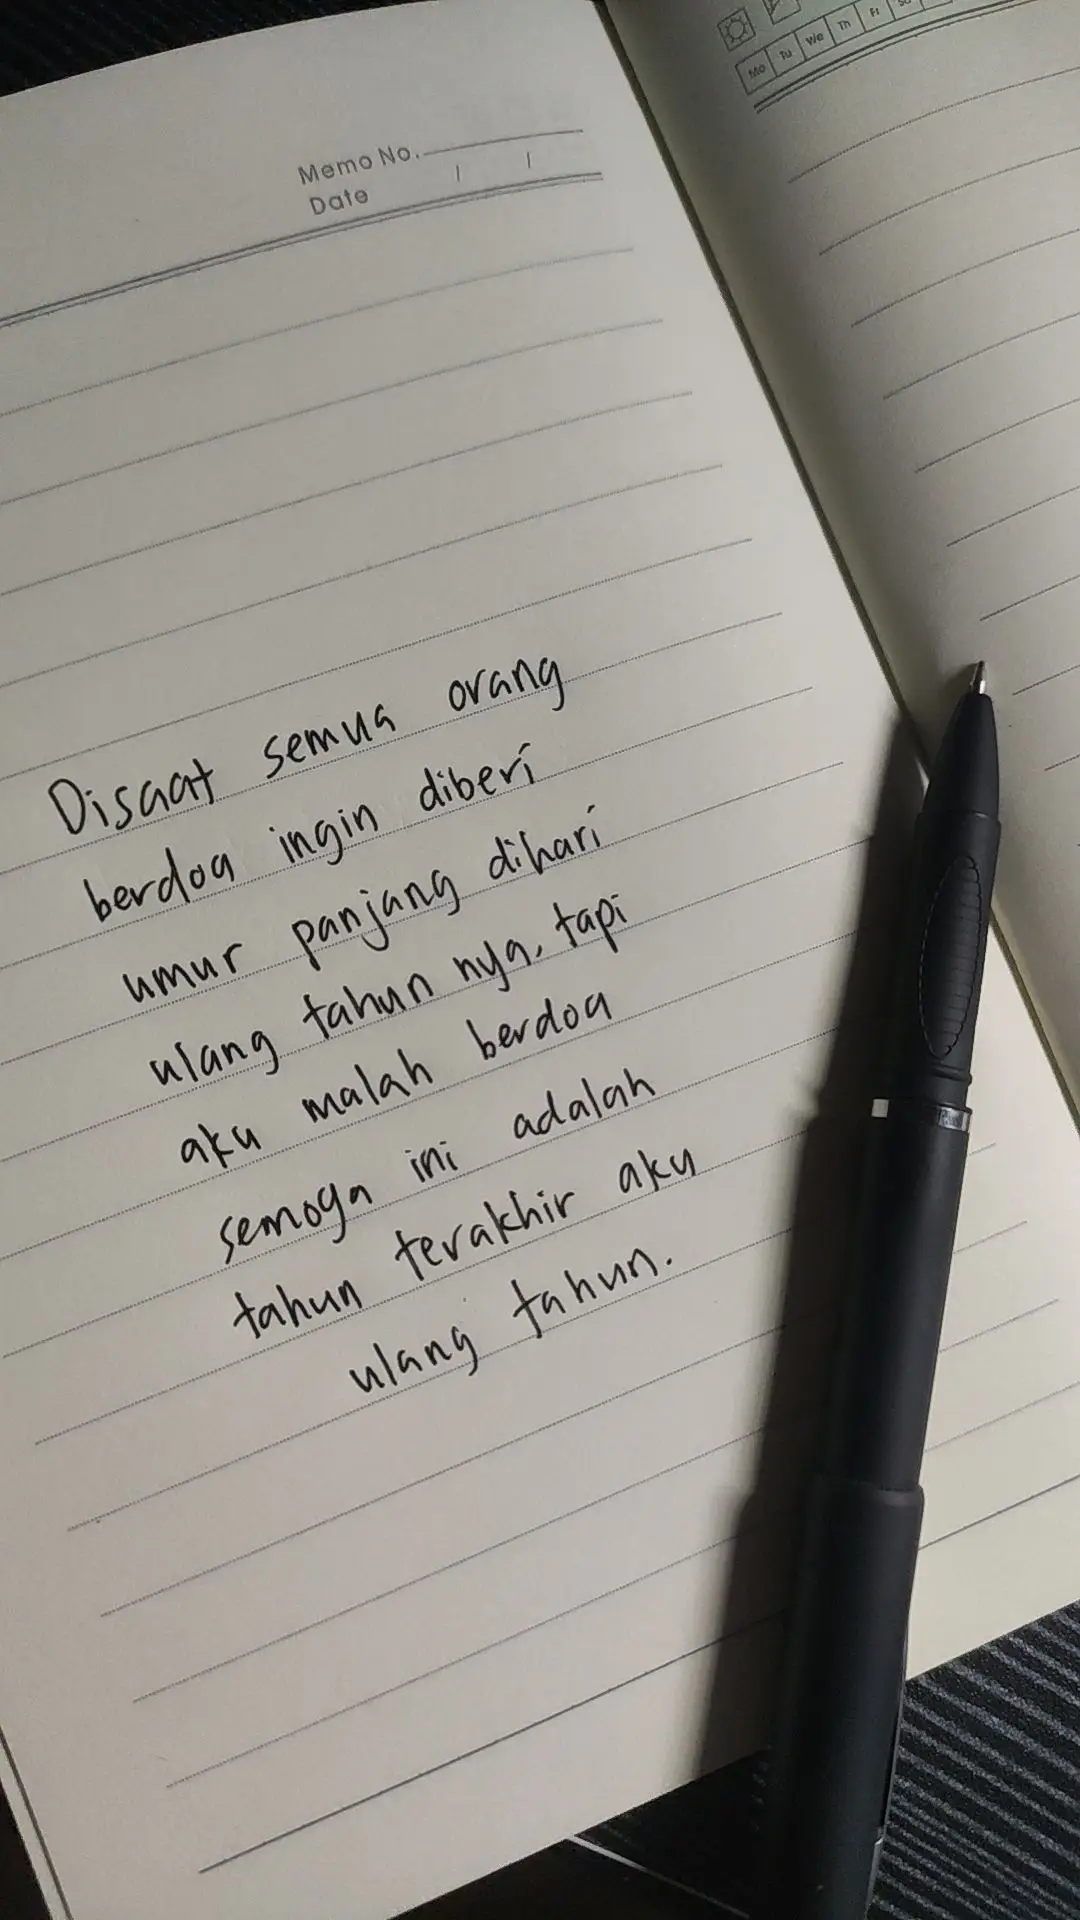 Memo No.
Date / /
Mo Tu We Th Fr Sa
Disaat semua orang
berdoa ingin diberi
umur panjang dihari
ulang tahun nya, tapi
aku malah berdoa
semoga ini adalah
tahun terakhir aku
ulang tahun.